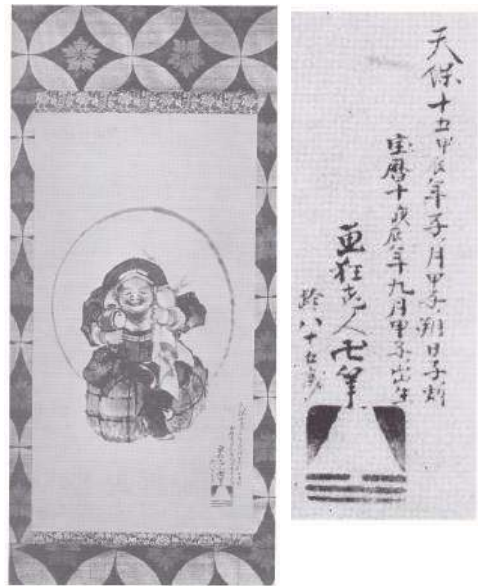 天保十五甲辰年子ノ月甲子ノ朔日子ノ刻
宝暦十庚辰年九月甲子出生
画狂老人卍筆
齢八十五歳